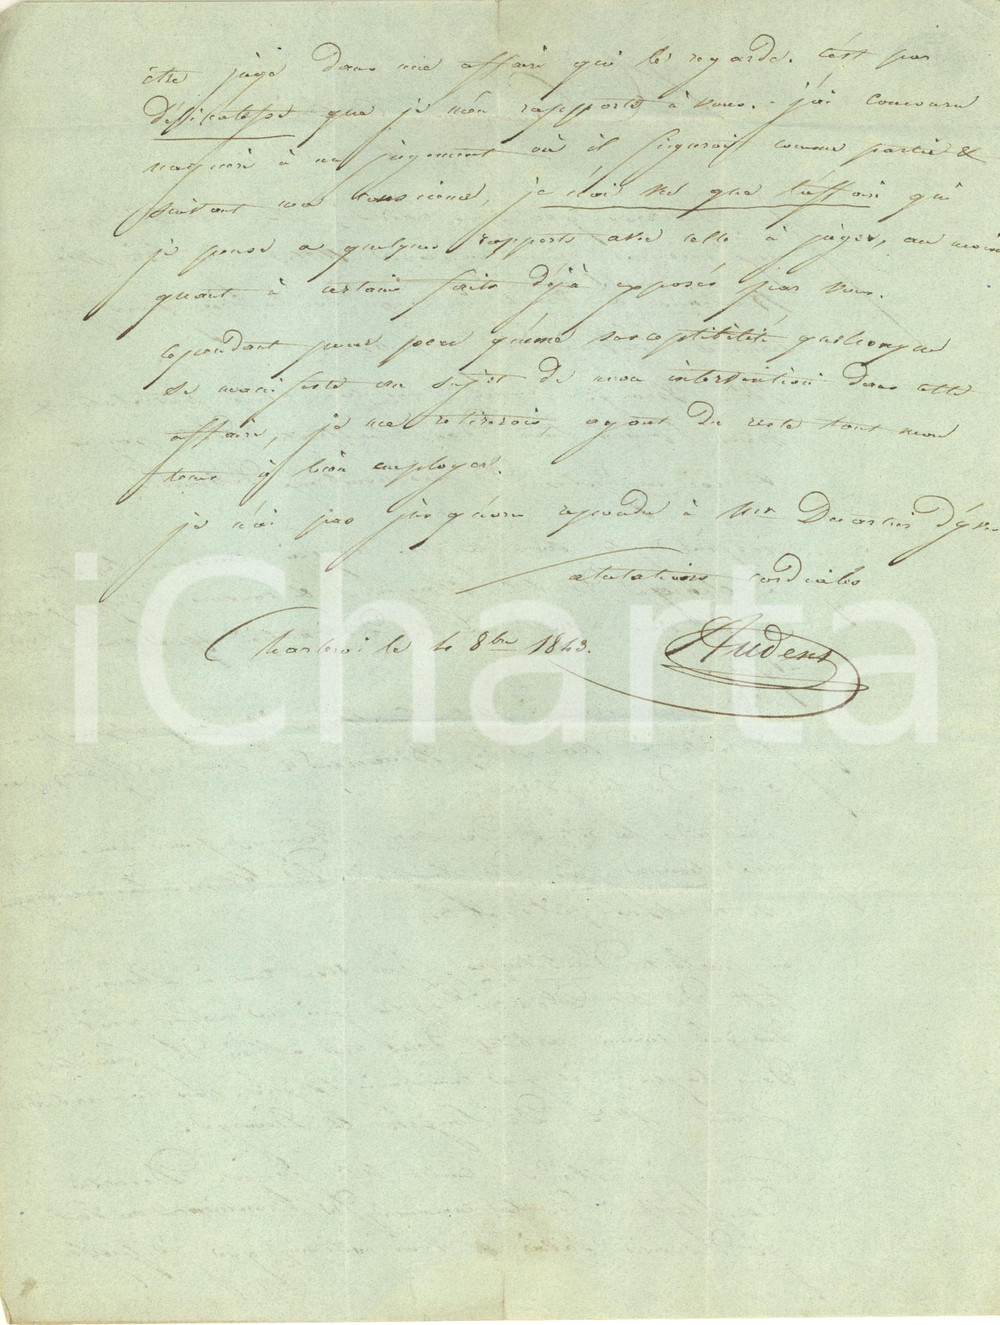 être jugé dans une affaire qui le regarde. c'est par
délicatesse que je m'en rapporte à vous. j'ai concouru
naguère à un jugement où il figurait comme partie &
suivant ma conscience, je n'ai vu que l'affaire qui
je pense a quelques rapports avec celle à juger, au moins
quant à certains faits déjà exposés par vous.
cependant pour peu qu'une susceptibilité quelconque
se manifeste au sujet de mon intervention dans cette
affaire, je me retirerois, ayant du reste tout mon
tems à bien employer.
je n'ai pas jusqu'ici répondu à Mr
salutations cordiales
Charleroi le 10 8bre 1843.
Audent
iCharta